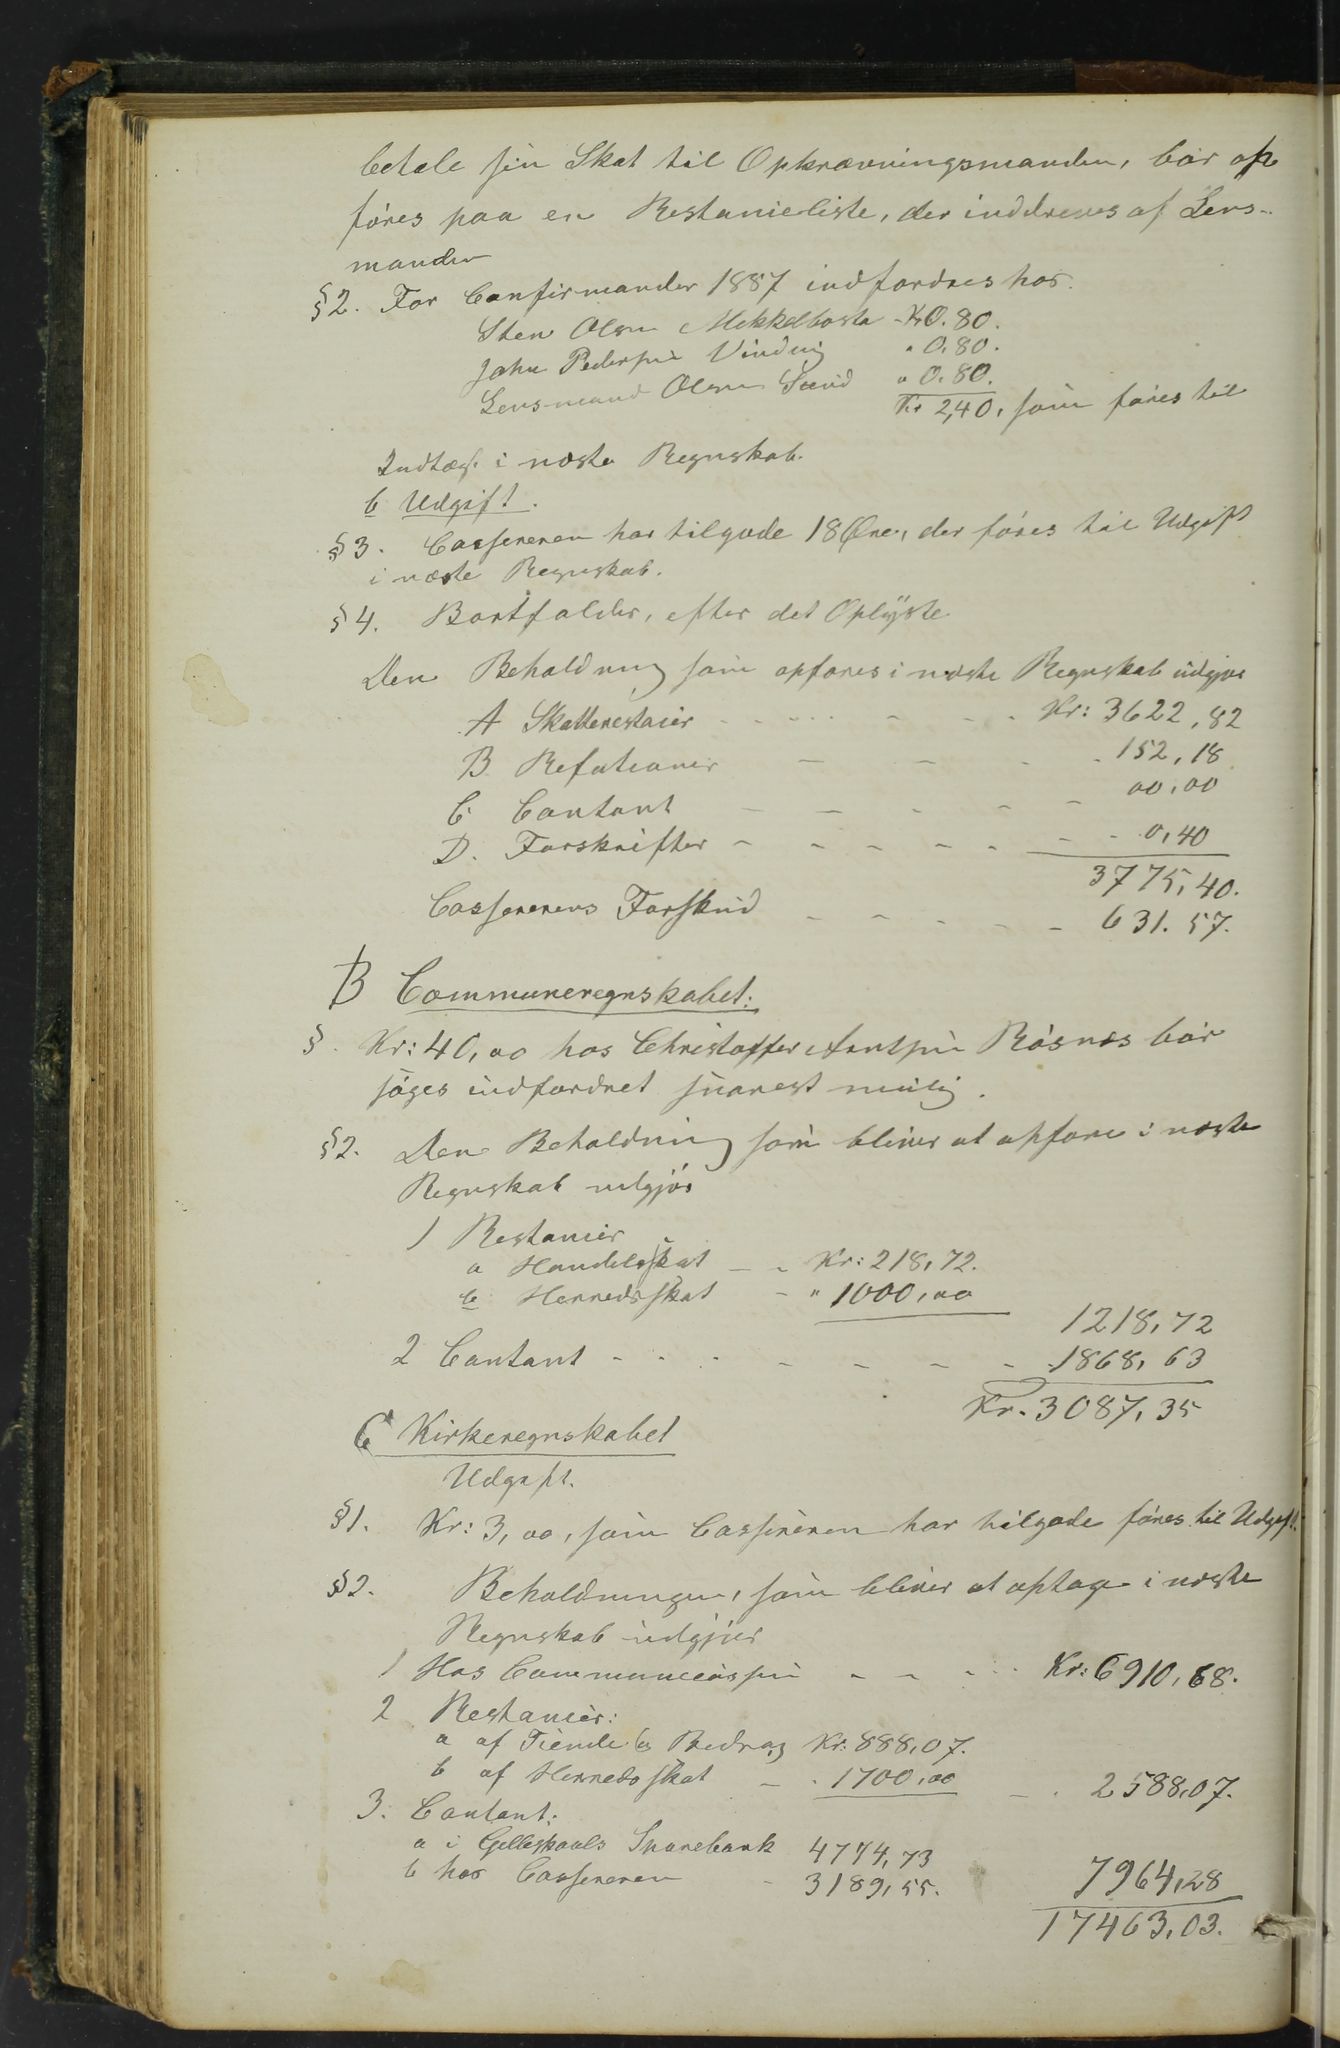 betale sin Skat til Opkrævningsmanden, bør op
føres paa en Restanceliste, der inddreves af Lens-
manden
§2. For Confirmander 1887 indfordres hos.
Sten Olsen Mekkelbostø - Kr 0.80.
John Pedersen Vinding " 0.80.
Lensmand Olsen Sund " 0.80.
Kr 2,40, som føres til
Indtægt i næste Regnskab.
b Udgift.
§3. Cassereren har tilgode 18 Øre, der føres til Udgift
i næste Regnskab.
§4. Bortfalder, efter det Oplyste
Den Beholdning som opføres i næste Regnskab udgjør
A Skatterestaicer - - - - - - Kr: 3622,82
B Refutioner - - - - 152,18
C Contant - - - - - 00,00
D. Forskrifter - - - - - - - 0,40
3775,40.
Cassererens Forskud - - - - - 631.57.
B Communeregnskabet:
§. Kr: 40,00 hos Christoffer Arntsen Røsnes bør
søges indfordret snarest mulig.
§2. Den Beholdning som bliver at opføre i næste
Regnskab udgjør
1 Restancer
a Handelsskat - - Kr: 218,72.
b Herredsskat - " 1000,00
1218,72
2 Contant - - - - - - - 1868,63
Kr. 3087,35
C Kirkeregnskabet
Udgift.
§1. Kr: 3,00, som Cassereren har tilgode føres til Udgift.
§2. Beholdningen, som bliver at optage i næste
Regnskab udgjør
1 Hos Communecassen - - - - Kr: 6910,68.
2 Restancer:
a af Tiende & Bidrag Kr: 888,07.
b af Herredsskat - . 1700,00 - . 2588,07.
3. Contant:
a i Gilleskaals Sparebank 4774,73
b hos Cassereren - 3189,55. 7964,28
17463,03.